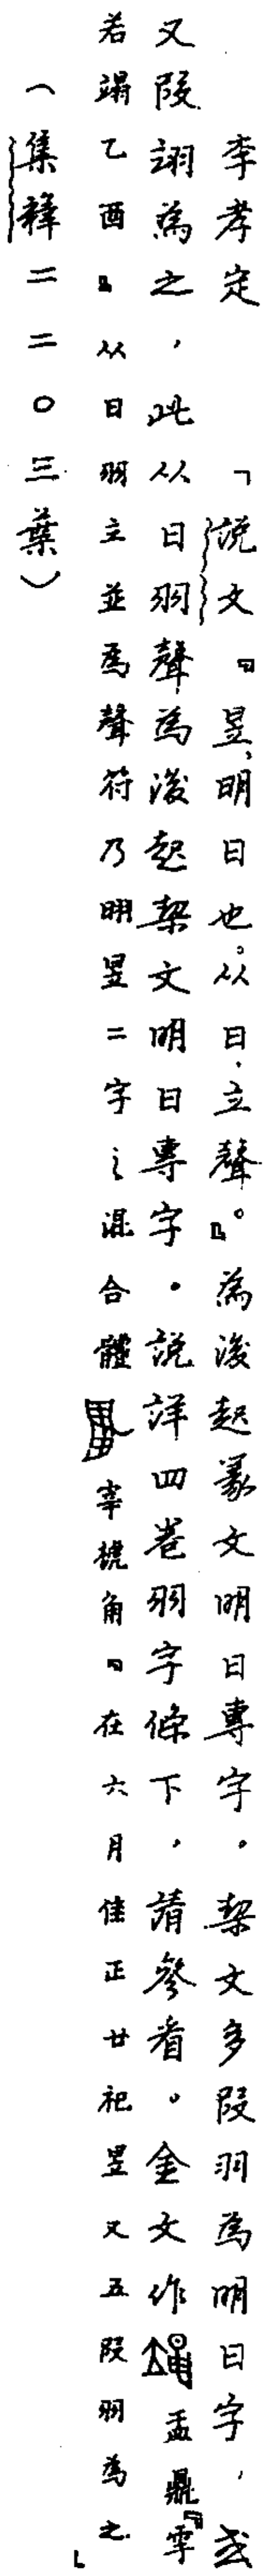 李孝定　「說文『昱，明日也。从日，立聲。』為後起篆文明日專字。栔文多叚羽為明日字，或
又叚翊為之，此从日羽聲為後起栔文明日專字。說詳四卷羽字條下，請參看。金文作　盂鼎『雩
若翌乙酉』从日羽立並為聲符乃昍昱二字之混合體　宰椃角『在六月隹王廿祀昱又五叚羽為之」
（集釋二二〇三葉）